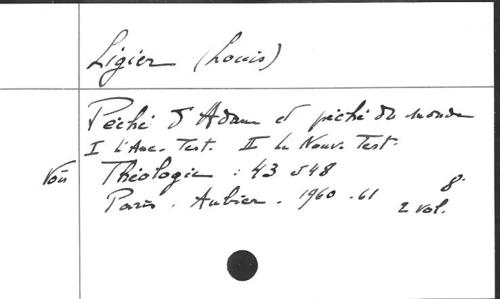 Ligier (Louis)
Péché d'Adam et péché du monde
I L'Anc. Test. II Le Nouv. Test.
Voir Théologie : 43 & 48
8°
Paris. Aubier. 1960-61
2 vol.